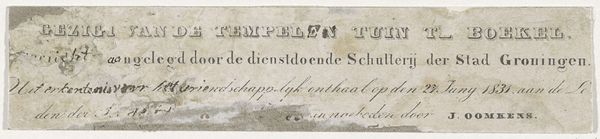 GEZIGT VAN DE TEMPEL EN TUIN TE BOEKEL.
aangelegd door de dienstdoende Schutterij der Stad Groningen.
Uit erkentenis voor het vriendschappelijk onthaal op den 27 Juny 1831. aan de Le
den der aangeboden door J. OOMKENS.